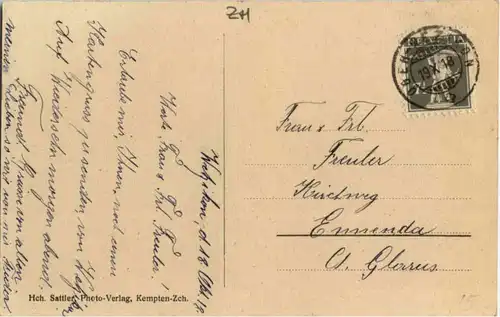 ZH
Wetzikon, d. 18. Okt. 18.
Werte Frau & Frl. Freuler!
Erlaube mir Ihnen noch einen
Kartengruss zu senden von Wetzikon
Auf Wiedersehn morgen abend.
Freundl. Grüsse von allen
meinen
Hch. Sattler, Photo-Verlag, Kempten-Zch.
Frau & Frl.
Freuler
Kirchweg
Ennenda
Ct. Glarus